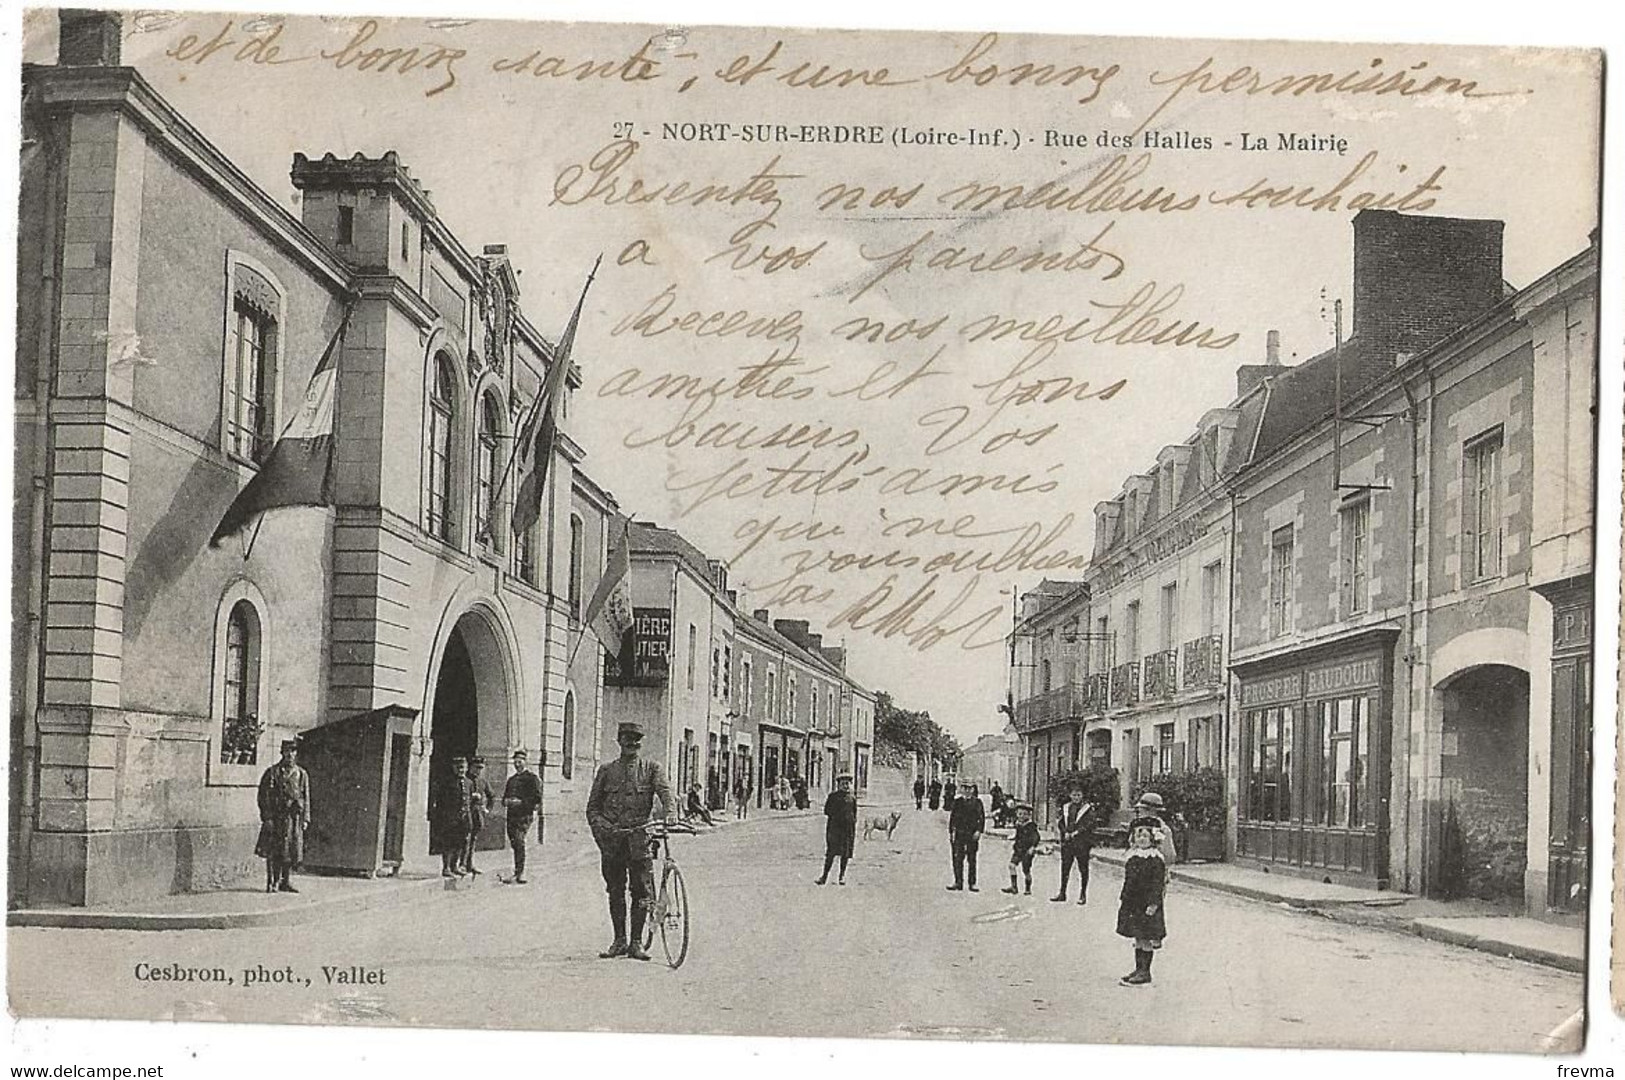 et de bonne santé, et une bonne permission
27 - NORT-SUR-ERDRE (Loire-Inf.) - Rue des Halles - La Mairie
Presentez nos meilleurs souhaits
a vos parents
Recevez nos meilleurs
amitiés et bons
baisers, Vos
petits amis
qui ne
vous oublient
pas
IÈRE
UTIER
PROSPER BAUDOUIN
Cesbron, phot., Vallet
delcampe.net
frevma